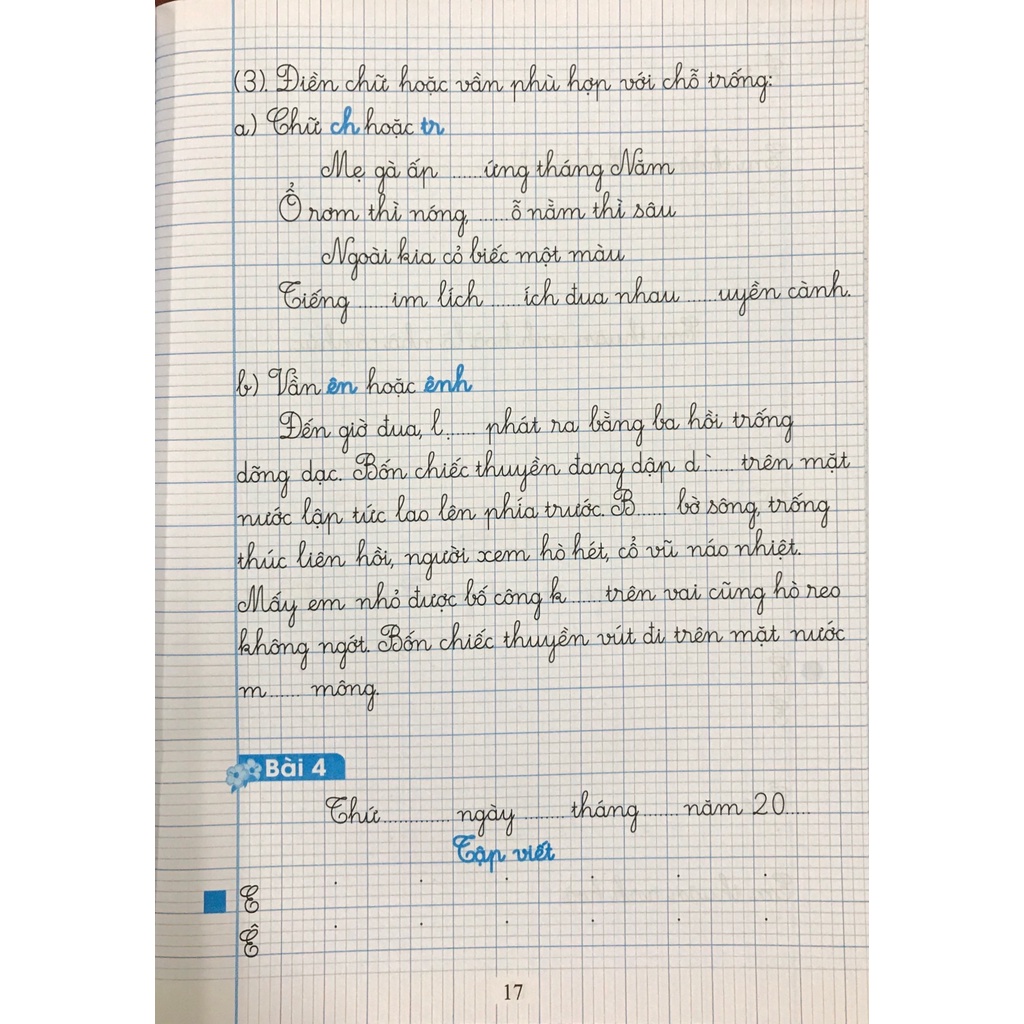 (3). Điền chữ hoặc vần phù hợp với chỗ trống:
a) Chữ ch hoặc tr
Mẹ gà ấp ......ứng tháng Năm
Ổ rơm thì nóng, ......ỗ nằm thì sâu
Ngoài kia cỏ biếc một màu
Tiếng ..... im lích ..... ích đua nhau ..... uyền cành.
b) Vần ên hoặc ênh
Đến giờ đua, l....... phát ra bằng ba hồi trống
dõng dạc. Bốn chiếc thuyền đang dập d ̀...... trên mặt
nước lập tức lao lên phía trước. B...... bờ sông, trống
thúc liên hồi, người xem hò hét, cổ vũ náo nhiệt.
Mấy em nhỏ được bố công k ...... trên vai cũng hò reo
không ngớt. Bốn chiếc thuyền vút đi trên mặt nước
m ...... mông.
Bài 4
Thứ............. ngày ........ tháng ....... năm 20.....
Tập viết
E
Ê
17